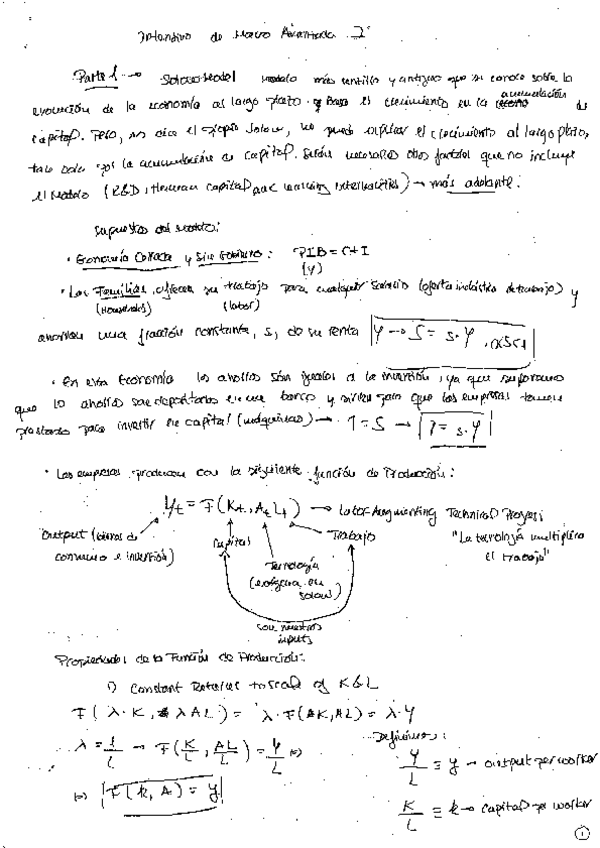 Intensivo de Macro Avanzada I
Parte 1 → Solow Model modelo más sencillo y antiguo que se conoce sobre la
evolución de la economía al largo plazo. Basa el crecimiento en la acumulación de
capital. Pero, no dice el propio Solow, no puede explicar el crecimiento al largo plazo,
tan solo por la acumulación de capital. Serán necesarios otros factores que no incluye
el modelo (R&D, Human capital, learning) → más adelante.
Supuestos del modelo:
· Economía Cerrada y Sin Gobierno: PIB = C + I
(Y)
· Las Familias ofrecen su trabajo para cualquier salario (oferta inelástica de trabajo) y
(Households) (labor)
ahorran una fracción constante, s, de su renta Y → S = s·Y, 0≤s≤1
· En esta Economía los ahorros son iguales a la inversión, ya que suponemos
que los ahorros son depositados en un banco y sirven para que las empresas tomen
prestado para invertir en capital (máquinas) → I = S → I = s·Y
· Las empresas producen con la siguiente función de Producción:
Yt = F(Kt, At Lt) → Labor Augmenting Technical Progress
Output (bienes de consumo e inversión) capital Trabajo "La tecnología multiplica el trabajo"
Tecnología
(exógena en Solow)
son nuestros
inputs
Propiedades de la Función de Producción:
1) Constant Returns to scale of K & L
F(λ·K, λAL) = λ·F(K, AL) = λ·Y
λ = 1/L → F(K/L, AL/L) = Y/L ⇒
⇒ F(k, A) = y
Definimos:
Y/L ≡ y → output per worker
K/L ≡ k → capital per worker
1